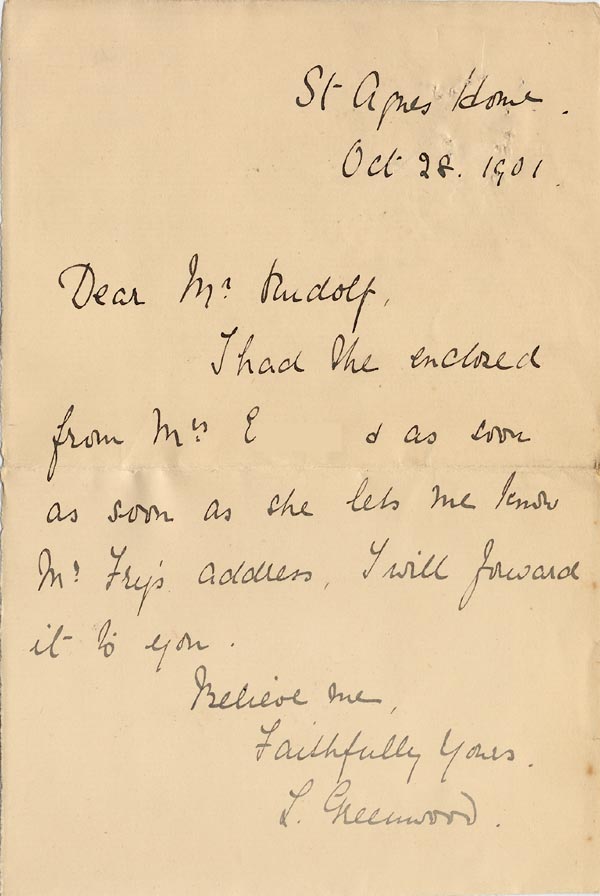 St Agnes Home.
Oct 28. 1901.
Dear Mr. Rudolf,
I had the enclosed
from Mrs E & as soon
as soon as she lets me know
Mr. Fry's address, I will forward
it to you.
Believe me,
Faithfully Yours.
L. Greenwood.